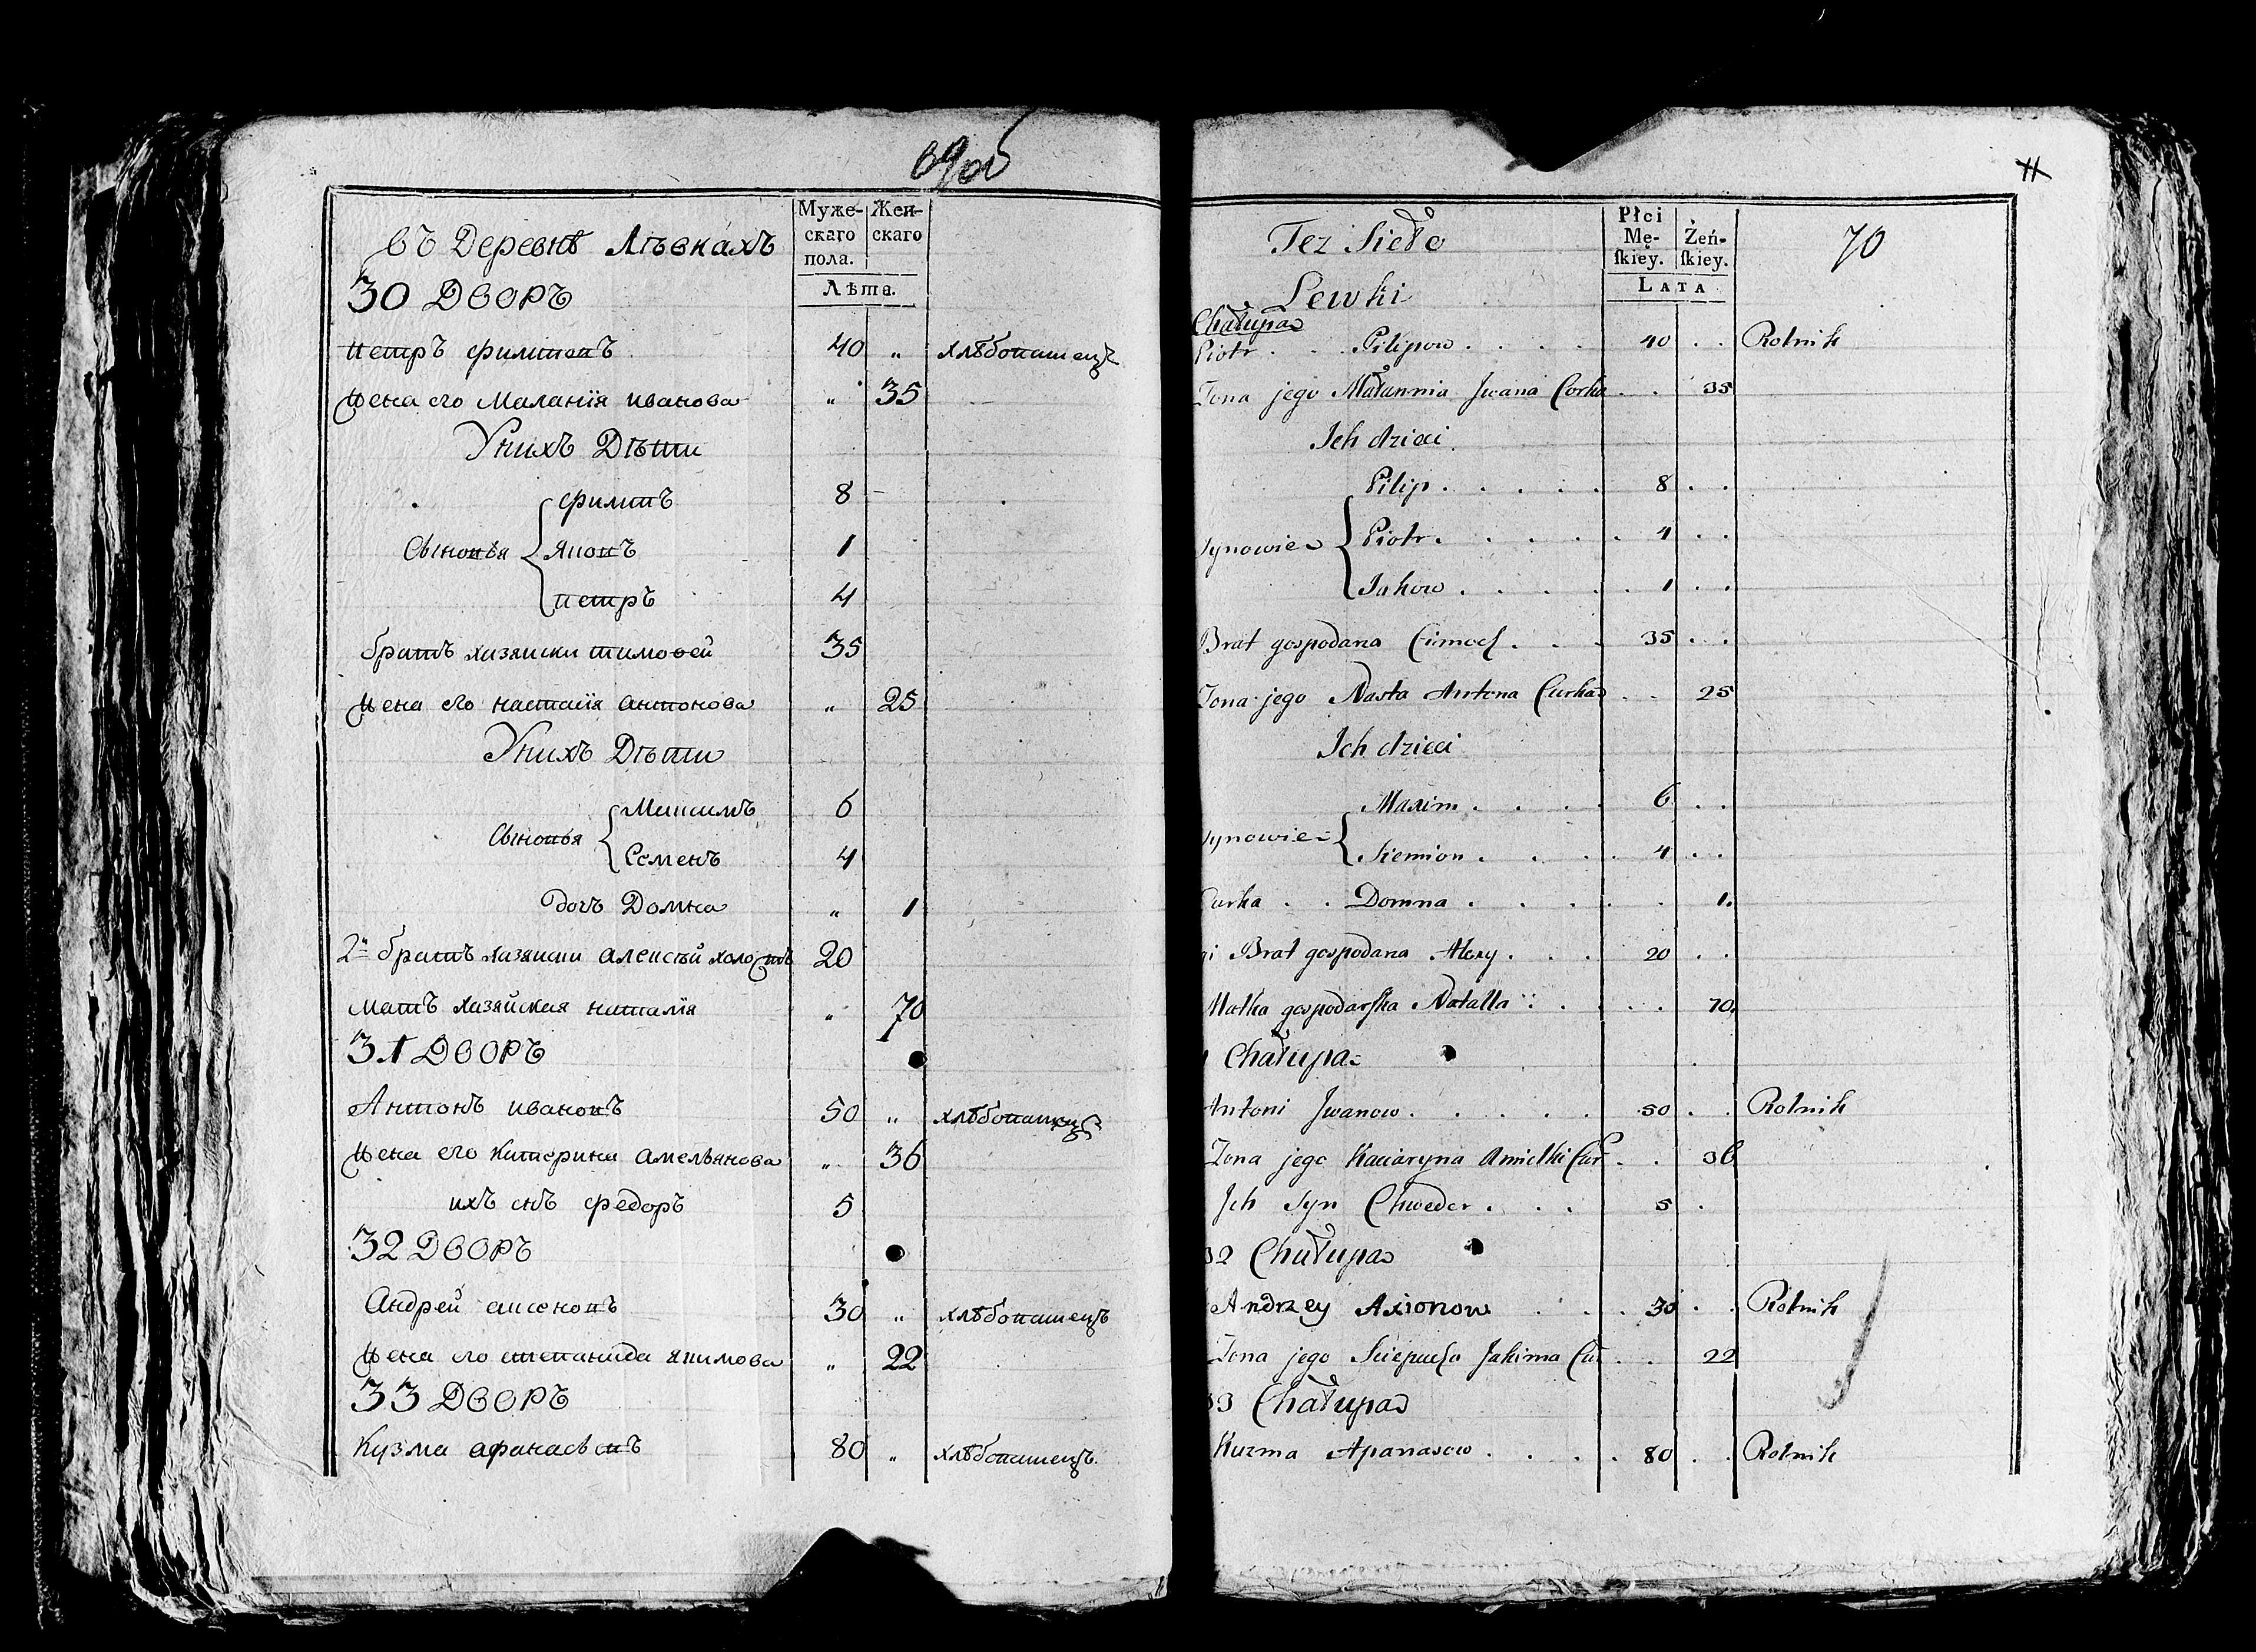 69об
Муже- Жен-
скаго скаго
пола.
Лѣта.
въ Деревнѣ Лѣвкахъ
30 Дворъ
петръ филиповъ 40 „ хлѣбопашецъ
жена его Маланїя иванова „ 35
У нихъ Дѣти
филипъ 8
Сыновья Яковъ 1
петръ 4
братъ хазяиски тимофей 35
жена его настасїя антонова „ 25
У нихъ Дѣти
Максимъ 6
Сыновья
Семенъ 4
дочь Домна „ 1
2й братъ хазяиски алексѣй холостъ 20
мать хазяйская наталїя „ 70
31 Дворъ
Антонъ ивановъ 50 „ хлѣбопашецъ
жена его катерина амельянова „ 36
ихъ снъ федоръ 5
32 Дворъ
Андрей аксеновъ 30 „ хлѣбопашецъ
жена его степанида якимова „ 22
33 Дворъ
Кузма афанасьевъ 80 „ хлѣбопашецъ
11
Płci
Mę- Żeń-
skiey. skiey.
LATA
70
Tez Sieło
Lewki
Chałupa
Piotr Pilipow 40 Rolnik
Zona jego Małannia Jwana Corka 35
Jch dzieci
Pilip 8
Synowie Piotr 4
Jakow 1
Brat gospodara Cimoch 35
Zona jego Nasta Antona Curka 25
Jch dzieci
Maxim 6
Synowie
Siemion 4
Curka Domna 1.
gi Brat gospodara Alexy 20
Matka gospodarska Natalla 70.
Chałupa
Antoni Jwanow 50 Rolnik
Zona jego Kaciaryna Amielki Cur 36
Jch Syn Chweder 5
32 Chałupa
Andrzey Axionow 30 Rolnik
Zona jego Jakima Cur 22
33 Chałupa
Kuzma Apanasow 80 Rolnik